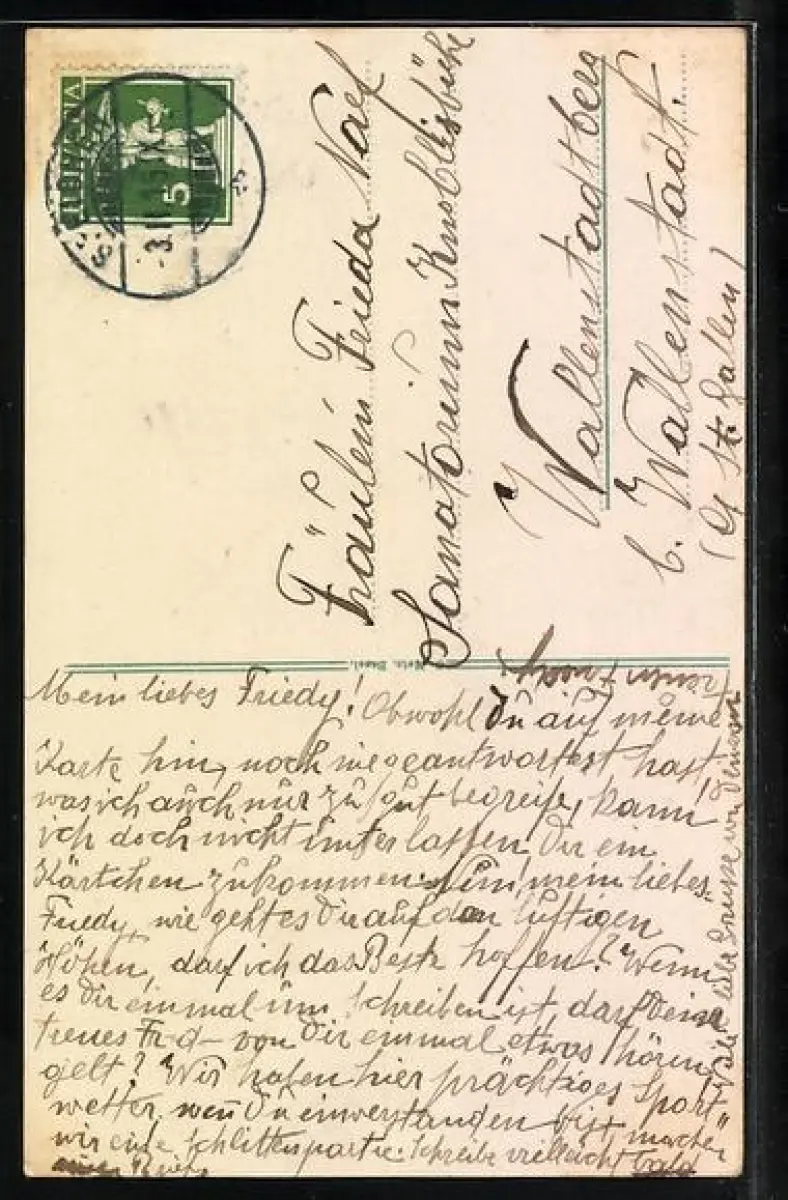 HELVETIA
5
Fräulein Frieda Naef
Sanatorium Knoblisbühl
Wallenstadtberg
b. Wallenstadt.
(Ct St. Gallen)
Basel.
Mein liebes Friedy! Obwohl Du auf meine
Karte hin, noch nie geantwortet hast,
was ich auch nur zu gut begreife, kann
ich doch nicht unterlassen Dir ein
Kärtchen zukommen. Nun! mein liebes
Friedy, wie geht es Dir auf den luftigen
Höhen, darf ich das Beste hoffen? Wenn
es Dir einmal ums Schreiben ist, darf Deine
treues Frd– von Dir einmal etwas hören
gelt? Wir haben hier prächtiges Sport"
wetter, wen̄ Du einverstanden bist, machen
wir eine Schlittenpartie. Schreibe vielleicht bald
liebe Grüsse von Deinem